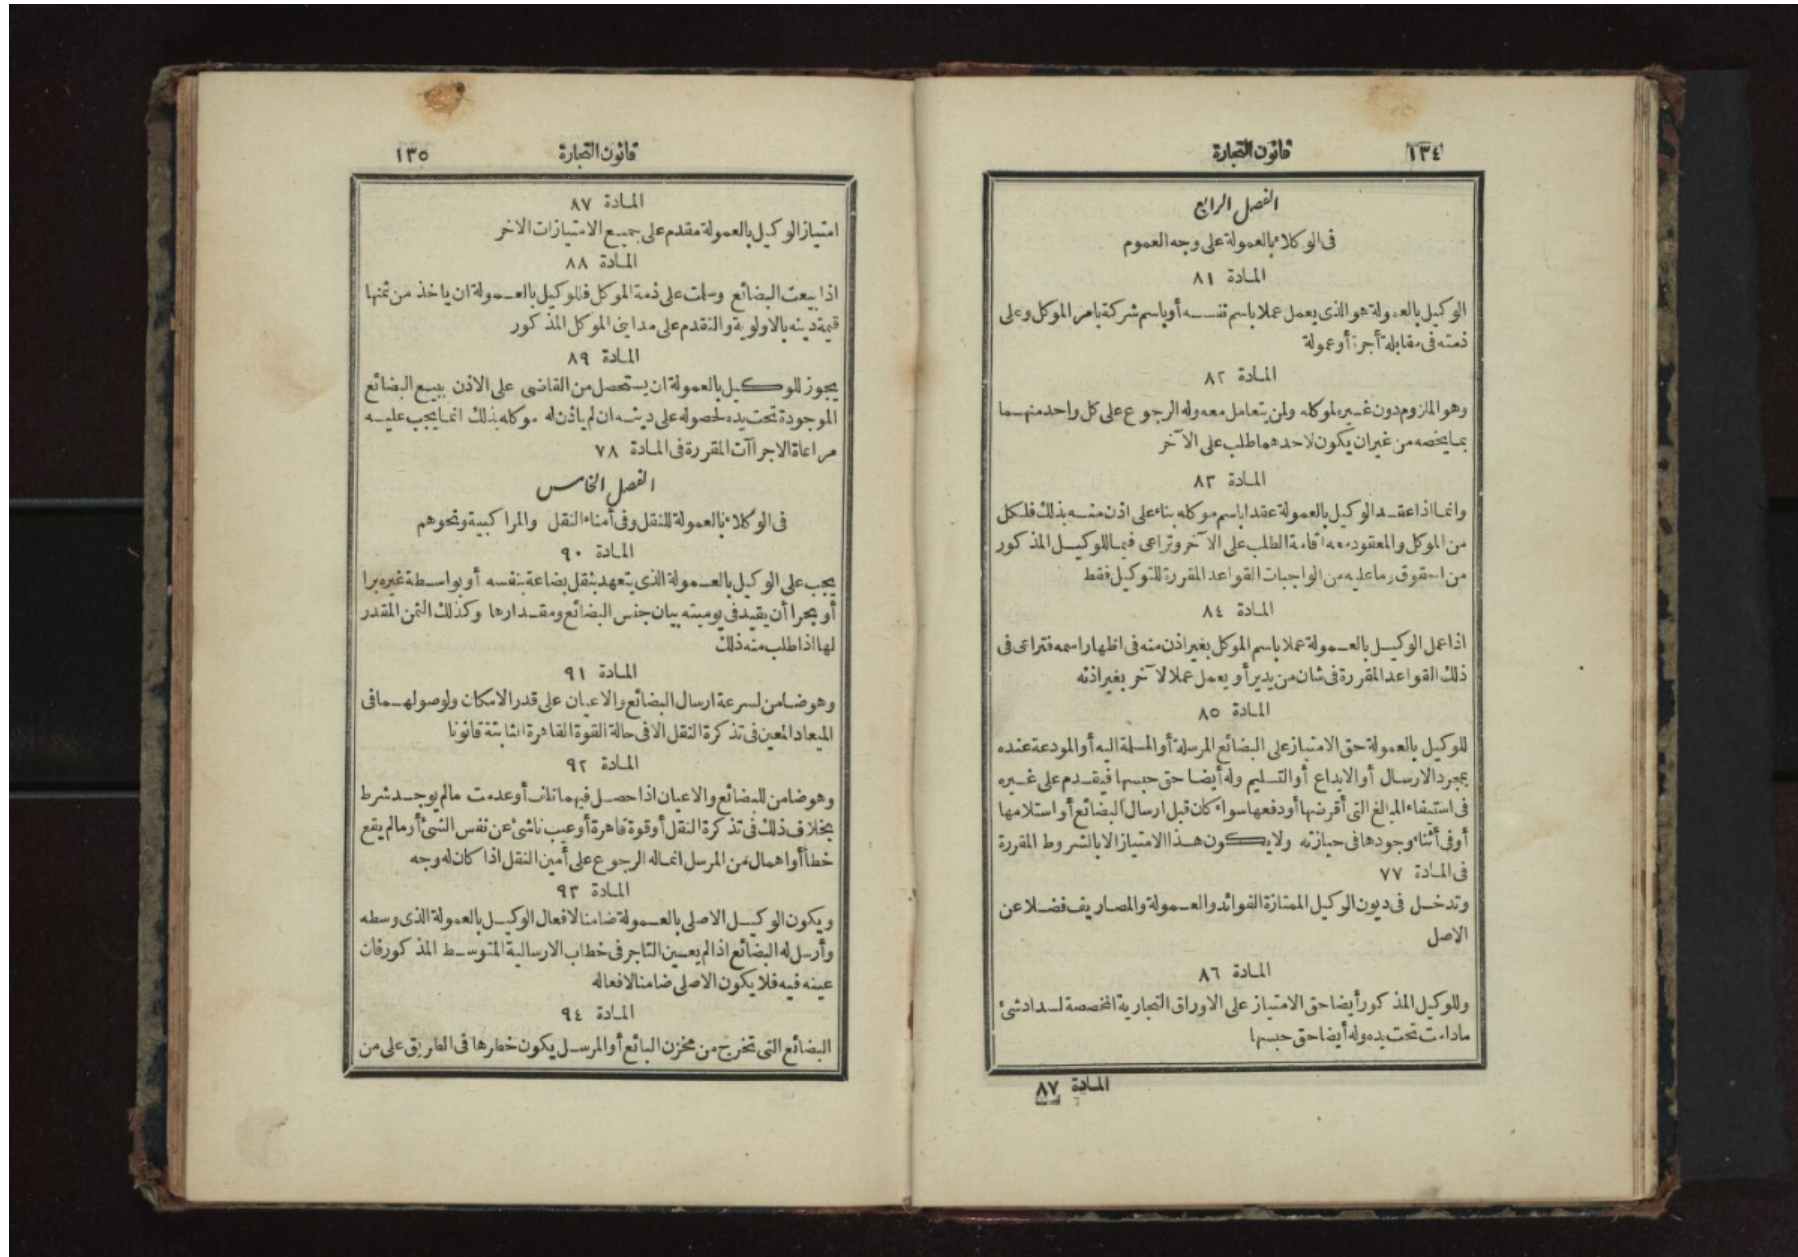 ١٣٤
قانون التجارة
الفصل الرابع
فى الوكلاء بالعمولة على وجه العموم
المادة ٨١
الوكيل بالعمولة هو الذى يعمل عملا باسم نفسه أو باسم شركة بامر الموكل وعلى
ذمته فى مقابلة أجرة أو عمولة
المادة ٨٢
وهو الملزوم دون غيره لموكله ولمن يتعامل معه وله الرجوع على كل واحد منهما
بما يخصه من غير ان يكون لاحدهما طلب على الآخر
المادة ٨٣
وانما اذا عقد الوكيل بالعمولة عقدا باسم موكله بناء على اذن منه بذلك فلكل
من الموكل والمعقود معه اقامة الطلب على الآخر وتراعى فيما للوكيل المذكور
من الحقوق وما عليه من الواجبات القواعد المقررة للتوكيل فقط
المادة ٨٤
اذا عمل الوكيل بالعمولة عملا باسم الموكل بغير اذن منه فى اظهار اسمه فتراعى فى
ذلك القواعد المقررة فى شان من يدير أو يعمل عملا لآخر بغير اذنه
المادة ٨٥
للوكيل بالعمولة حق الامتياز على البضائع المرسلة أو المسلمة اليه أو المودعة عنده
بمجرد الارسال أو الايداع أو التسليم وله أيضا حق حبسها فيقدم على غيره
فى استيفاء المبالغ التى أقرضها أو دفعها سواء كان قبل ارسال البضائع أو استلامها
أو فى أثناء وجودها فى حيازته ولا يكون هذا الامتياز الا بالشروط المقررة
فى المادة ٧٧
وتدخل فى ديون الوكيل الممتازة الفوائد والعمولة والمصاريف فضلا عن
الاصل
المادة ٨٦
وللوكيل المذكور أيضا حق الامتياز على الاوراق التجارية المخصصة لسداد شئ
مادامت تحت يده وله أيضا حق حبسها
المادة ٨٧
١٣٥
قانون التجارة
المادة ٨٧
امتياز الوكيل بالعمولة مقدم على جميع الامتيازات الاخر
المادة ٨٨
اذا بيعت البضائع وسلمت على ذمة الموكل فللوكيل بالعمولة ان ياخذ من ثمنها
قيمة دينه بالاولوية والتقدم على مداينى الموكل المذكور
المادة ٨٩
يجوز للوكيل بالعمولة ان يستحصل من القاضى على الاذن ببيع البضائع
الموجودة تحت يده لحصوله على دينه ان لم ياذن له موكله بذلك انما يجب عليه
مراعاة الاجراآت المقررة فى المادة ٧٨
الفصل الخامس
فى الوكلاء بالعمولة للنقل وفى أمناء النقل والمراكبية ونحوهم
المادة ٩٠
يجب على الوكيل بالعمولة الذى يتعهد بنقل بضاعة بنفسه أو بواسطة غيره برا
أو بحرا أن يقيد فى يوميته بيان جنس البضائع ومقدارها وكذلك الثمن المقدر
لها اذا طلب منه ذلك
المادة ٩١
وهو ضامن لسرعة ارسال البضائع والاعيان على قدر الامكان ولوصولهما فى
الميعاد المعين فى تذكرة النقل الا فى حالة القوة القاهرة الثابتة قانونا
المادة ٩٢
وهو ضامن للبضائع والاعيان اذا حصل فيهما تلف أو عدمت مالم يوجد شرط
بخلاف ذلك فى تذكرة النقل أو قوة قاهرة أو عيب ناشئ عن نفس الشئ أو مالم يقع
خطأ أو اهمال من المرسل انما له الرجوع على أمين النقل اذا كان له وجه
المادة ٩٣
ويكون الوكيل الاصلى بالعمولة ضامنا لافعال الوكيل بالعمولة الذى وسطه
وأرسل له البضائع اذا لم يعين التاجر فى خطاب الارسالية المتوسط المذكور فان
عينه فيه فلا يكون الاصلى ضامنا لافعاله
المادة ٩٤
البضائع التى تخرج من مخزن البائع أو المرسل يكون خطرها فى الطريق على من